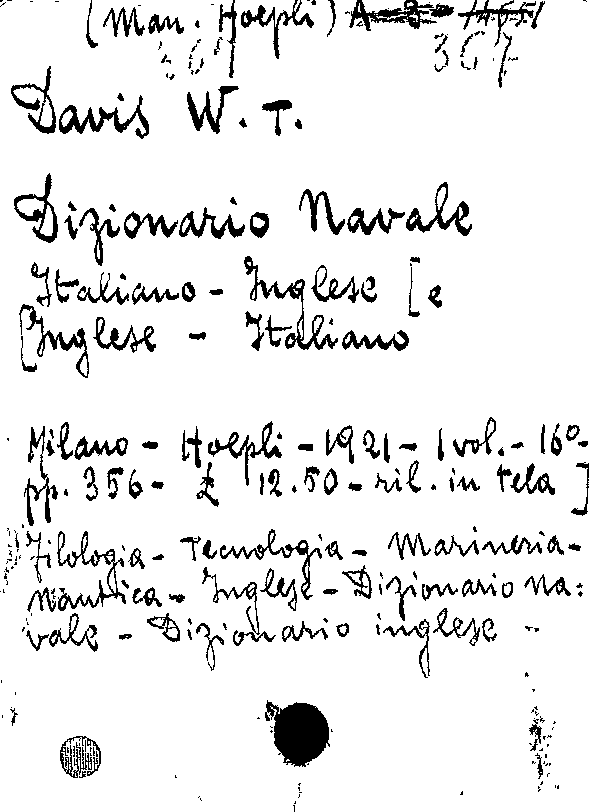 (Man. Hoepli) A
367
Davis W. T.
Dizionario Navale
Italiano - Inglese [e
[Inglese - Italiano
Milano - Hoepli - 1921 - 1 vol. - 16º -
pp. 356 - £ 12.50 - ril. in tela ]
Filologia - Tecnologia - Marineria -
Nautica - Inglese - Dizionario na:
vale - Dizionario inglese -